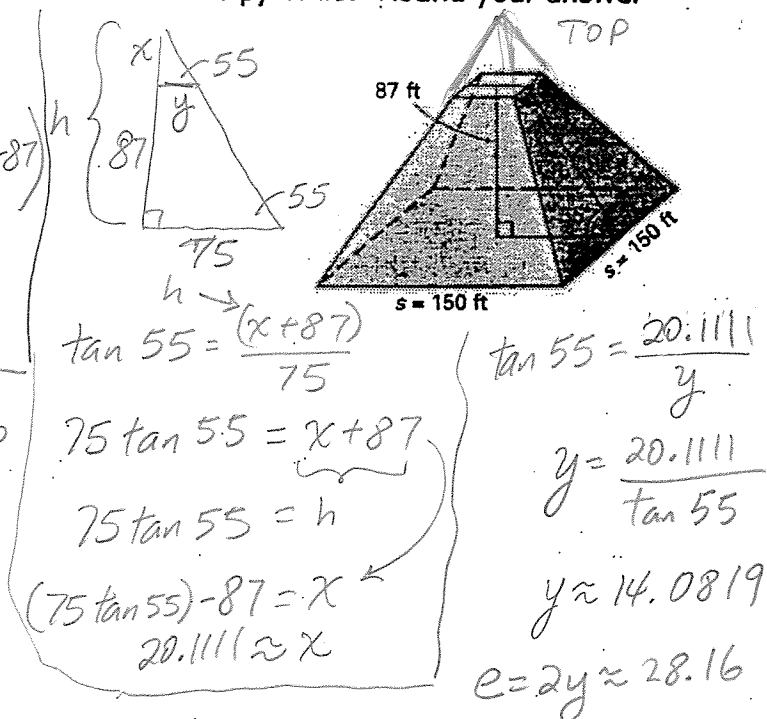 your answer
TOP
x
55
y
87 ft
-87)
h
87
55
75
s = 150 ft
s = 150 ft
h →
tan 55 = (x+87)/75
75 tan 55 = x+87
75 tan 55 = h
(75 tan 55)-87 = x
20.1111 ≈ x
tan 55 = 20.1111/y
y = 20.1111/tan 55
y ≈ 14.0819
e = 2y ≈ 28.16